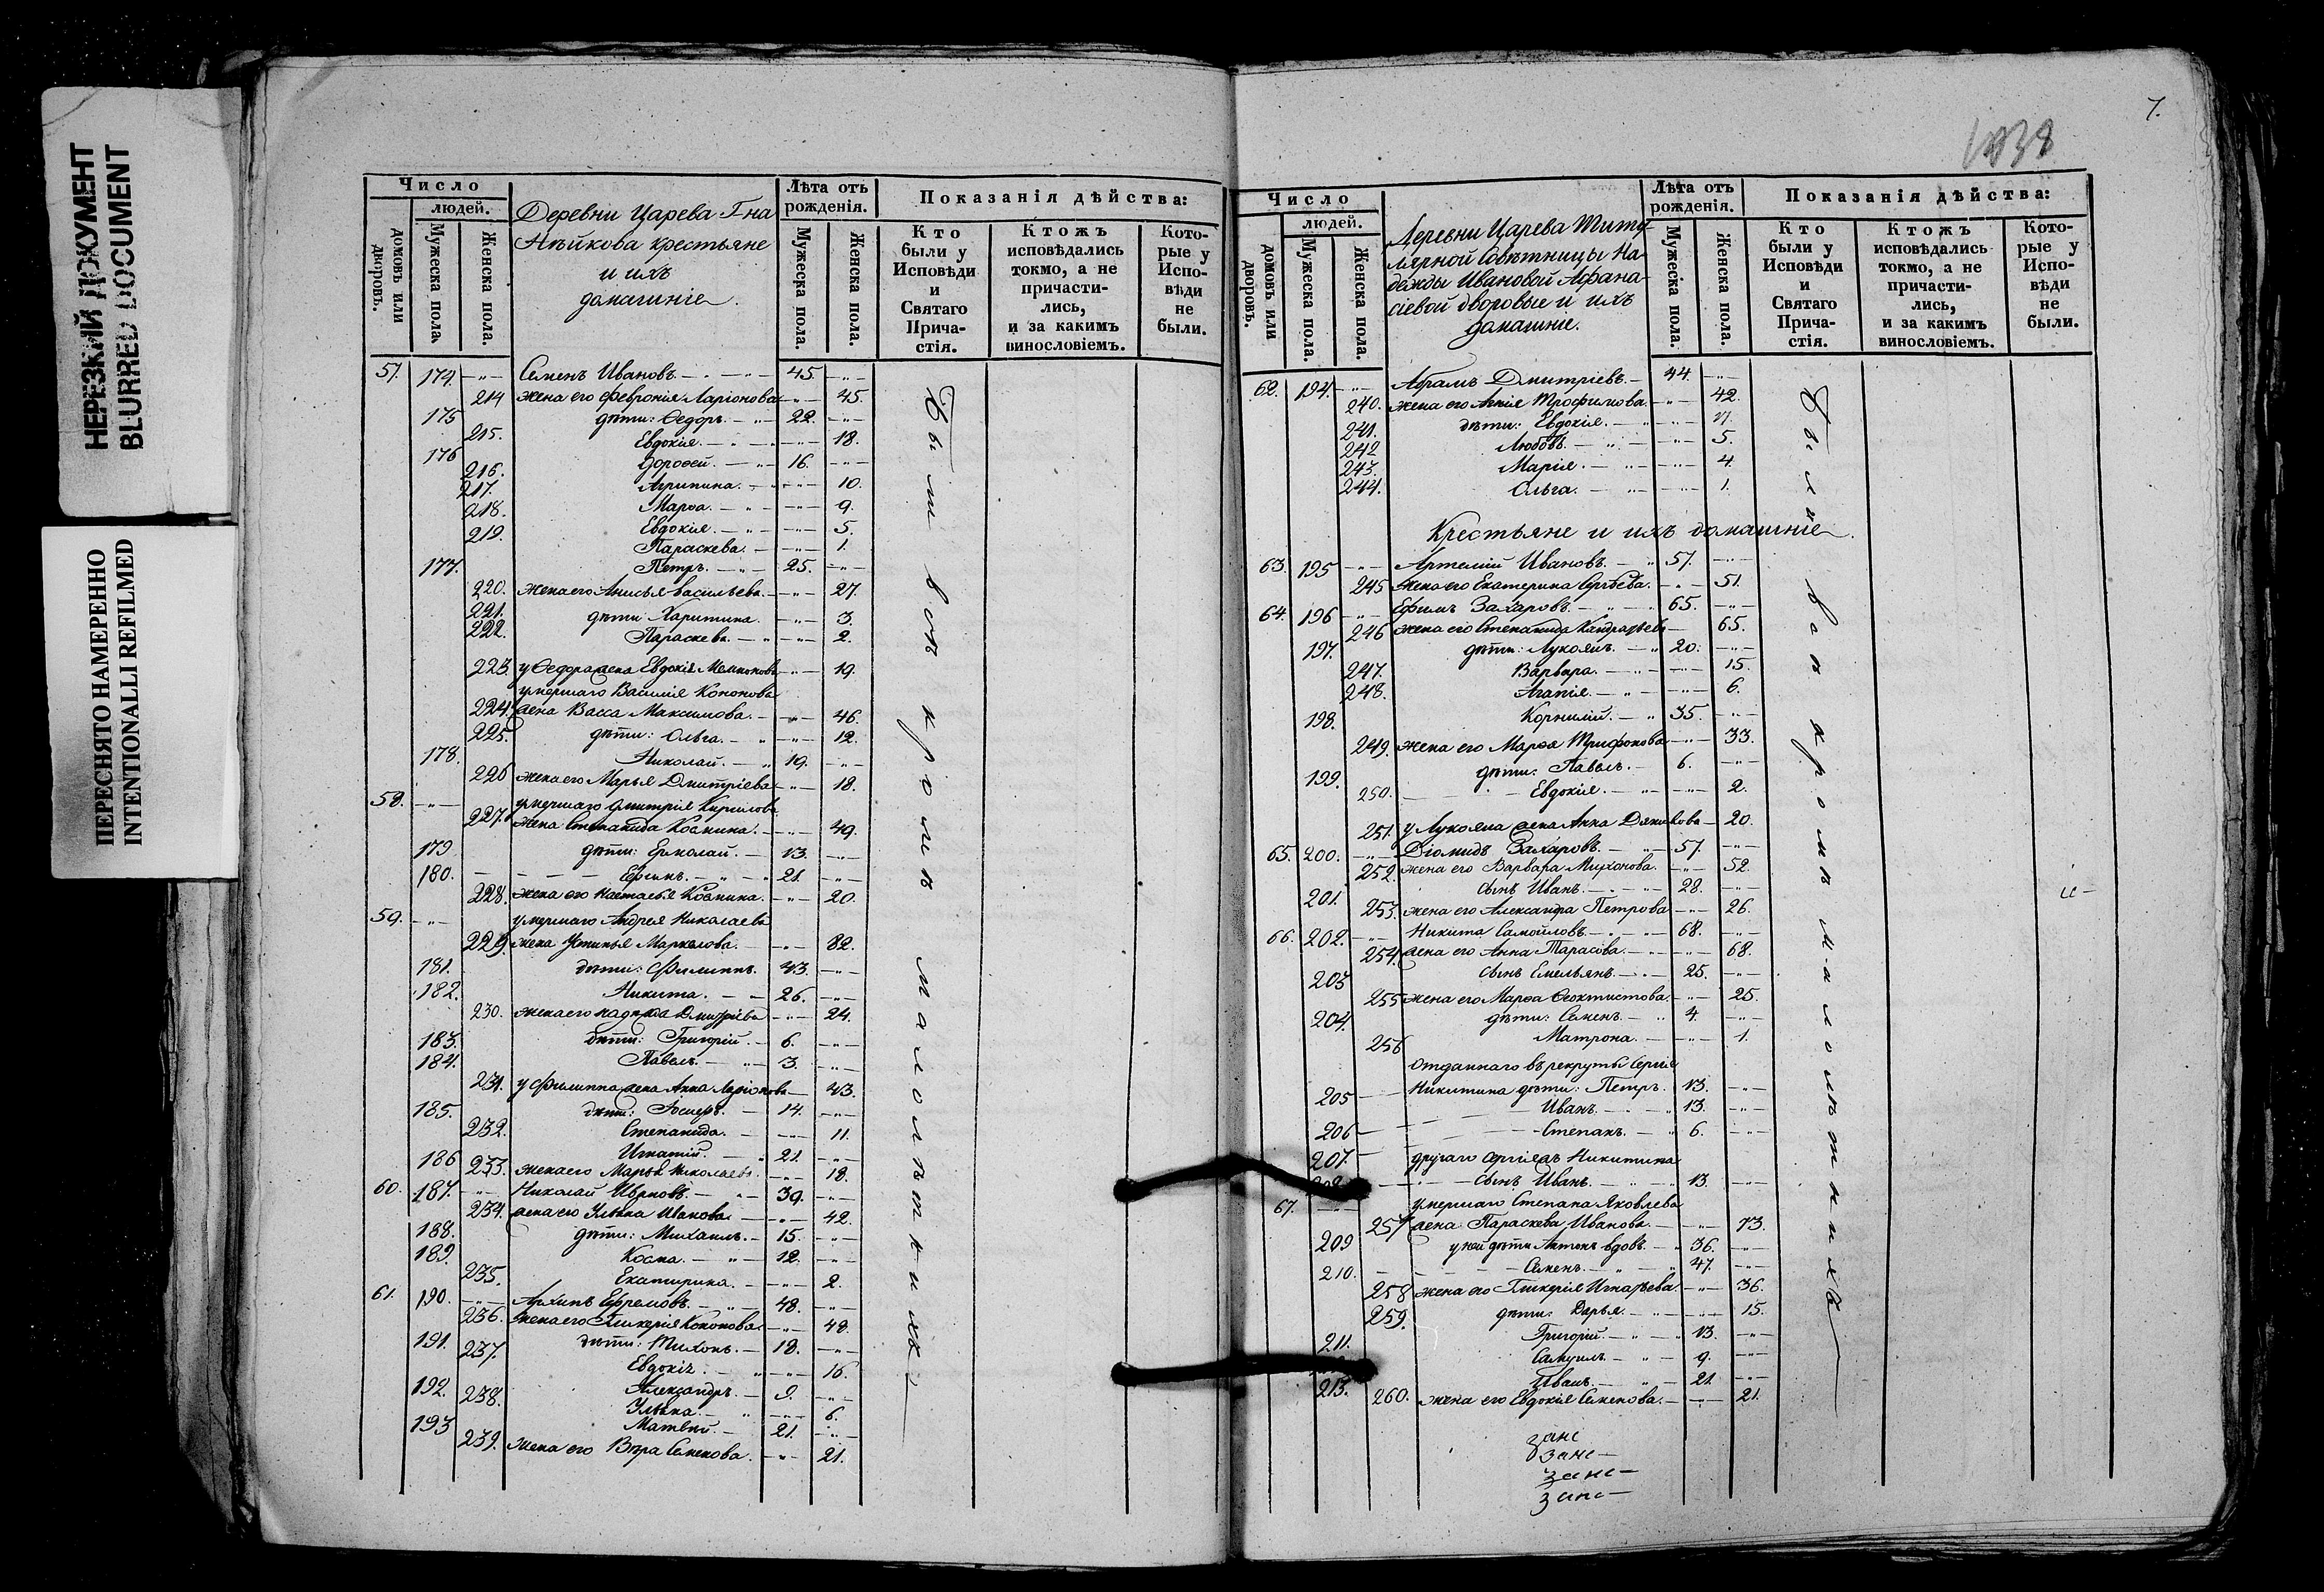 НЕРЕЗКИЙ ДОКУМЕНТ
BLURRED DOCUMENT
ПЕРЕСНЯТО НАМЕРЕННО
INTENTIONALLI REFILMED
Число
людей.
домовъ или дворовъ.
Мужеска пола.
Женска пола.
Деревни Царева Гна
крестьяне
и ихъ
домашніе.
Лѣта отъ рожденія.
Мужеска пола.
Женска пола.
Показанія дѣйства:
Кто были у Исповѣди и Святаго Прича-стія.
Ктожъ исповѣдались токмо, а не причасти-лись, и за какимъ винословіемъ.
Кото-рые у Испо-вѣди не были.
57. 174. Семенъ Ивановъ. 45.
214 жена его Феврония Ларіонова 45.
175 дѣти: Ѳедоръ. 22.
215. Евдокія. 18.
176 Дороѳей. 16.
216. Агрипина. 10.
217. Марѳа. 9.
218. Евдокія. 5.
219. Параскева. 1.
177. Петръ. 25.
220. жена его Анисья Васильева. 27.
221. дѣти Харитина. 3.
222. Параскева. 2.
223. у Ѳедора жена Евдокія 19.
умершаго Василія Кононова
224. жена Васса Максимова. 46.
225. дѣти: Ольга. 12.
178. Николай. 19.
226 жена его Марья Дмитріева 18.
58. умершаго Дмитрія Кирилова
227. жена Степанида Космина. 49.
179 дѣти: Ермолай. 13.
180. Ефимъ. 21.
228. жена его Настасья Космина. 20.
59. умершаго Андрея Николаева
229. жена Устинья Маркелова. 82.
181. дѣти: Филиппъ. 43.
182. Никита. 26.
230. жена его Надежда Дмитріева 24.
183. дѣти: Григорій. 6.
184. Павелъ. 3.
231. у Филиппа жена Анна Ларіонова 43.
185. дѣти: 14.
232. Степанида. 11.
186 Игнатій. 21.
233. жена его Марья Николаева 18.
60. 187. Николай 39.
234. жена его Ульяна Иванова 42.
188. дѣти: Михаилъ. 15.
189. Косма. 12.
235. Екатирина. 2.
61. 190. Архипъ Ефремовъ. 48.
236. жена его Гликерія Кононова 48.
191. дѣти: Тихонъ. 18.
237. Евдокія. 16.
192. Александръ. 9.
238. Ульяна. 6.
193 Матвей. 21.
239. жена его Вѣра Семенова. 21.
Были всѣ кромѣ малолѣтнихъ
7.
1838
Число
людей.
домовъ или дворовъ.
Мужеска пола.
Женска пола.
Деревни Царева Титу-
лярной Совѣтницы На-
дежды Ивановой Афана-
сіевой дворовые и ихъ
домашніе.
Лѣта отъ рожденія.
Мужеска пола.
Женска пола.
Показанія дѣйства:
Кто были у Исповѣди и Святаго Прича-стія.
Ктожъ исповѣдались токмо, а не причасти-лись, и за какимъ винословіемъ.
Кото-рые у Испо-вѣди не были.
62. 194. Абрамъ Дмитріевъ. 44.
240. жена его Трофимова. 42.
241. дѣти: Евдокія.
242 Любовь. 5.
243. Марія. 4.
244. Ольга. 1.
Крестьяне и ихъ домашніе
63. 195 Артемій Ивановъ. 57.
245 жена его Екатерина Сергѣева. 51.
64. 196 Ефимъ Захаровъ. 65.
246 жена его Степанида 65.
197. дѣти: Лукоянъ. 20.
247. Варвара. 15.
248. Агапія. 6.
198. Корнилій. 35.
249. жена его Марѳа Трифонова 33.
199. дѣти: Павелъ. 6.
250. Евдокія. 2.
251. у Лукояна жена Анна 20.
65. 200. Діомидъ Захаровъ. 57.
252. жена его Варвара 52.
201. сынъ Иванъ. 28.
253. жена его Александра Петрова 26.
66. 202. Никита Самойловъ. 68.
254. жена его Анна Тарасова. 68.
203 сынъ Емельянъ. 25.
255 жена его Марѳа Ѳеоктистова. 25.
204. дѣти: Семенъ. 4.
256 Матрона. 1.
отданнаго въ рекруты Сергія
205 Никитина дѣти: Петръ. 13.
206 Иванъ. 13.
207. Степанъ. 6.
другаго Сергѣя Никитина
208. сынъ Иванъ. 13.
67. умершаго Степана Яковлева
257 жена Параскева Иванова. 73.
209 у ней дѣти Антонъ вдовъ. 36.
210. Семенъ. 47.
258 жена его Гликерія Игнатьева. 36.
259. дѣти: Дарья. 15.
211. Григорій. 13.
Самуилъ. 9.
213. Иванъ. 21.
260. жена его Евдокія Семенова. 21.
Были всѣ кромѣ малолѣтнихъ